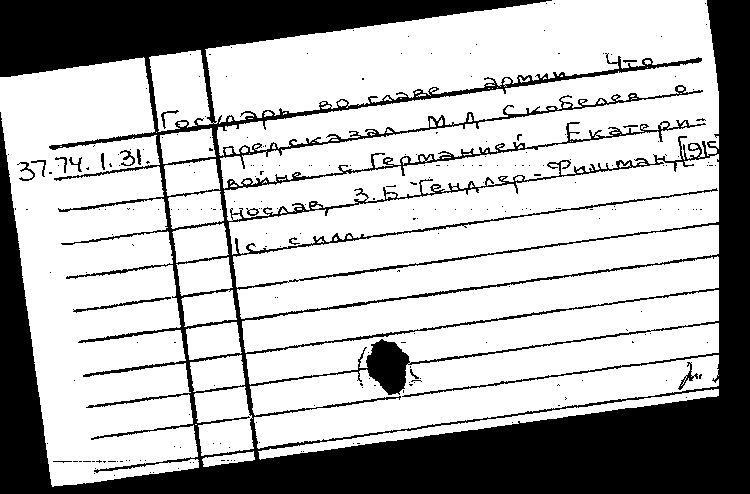 Государь во главе армии Что
предсказал М.Д Скобелев о
37.74.1.31.
войне с Германией. Екатери-
нослав, З.Б. Тендлер-Фишман, [1915
1с. с илл.